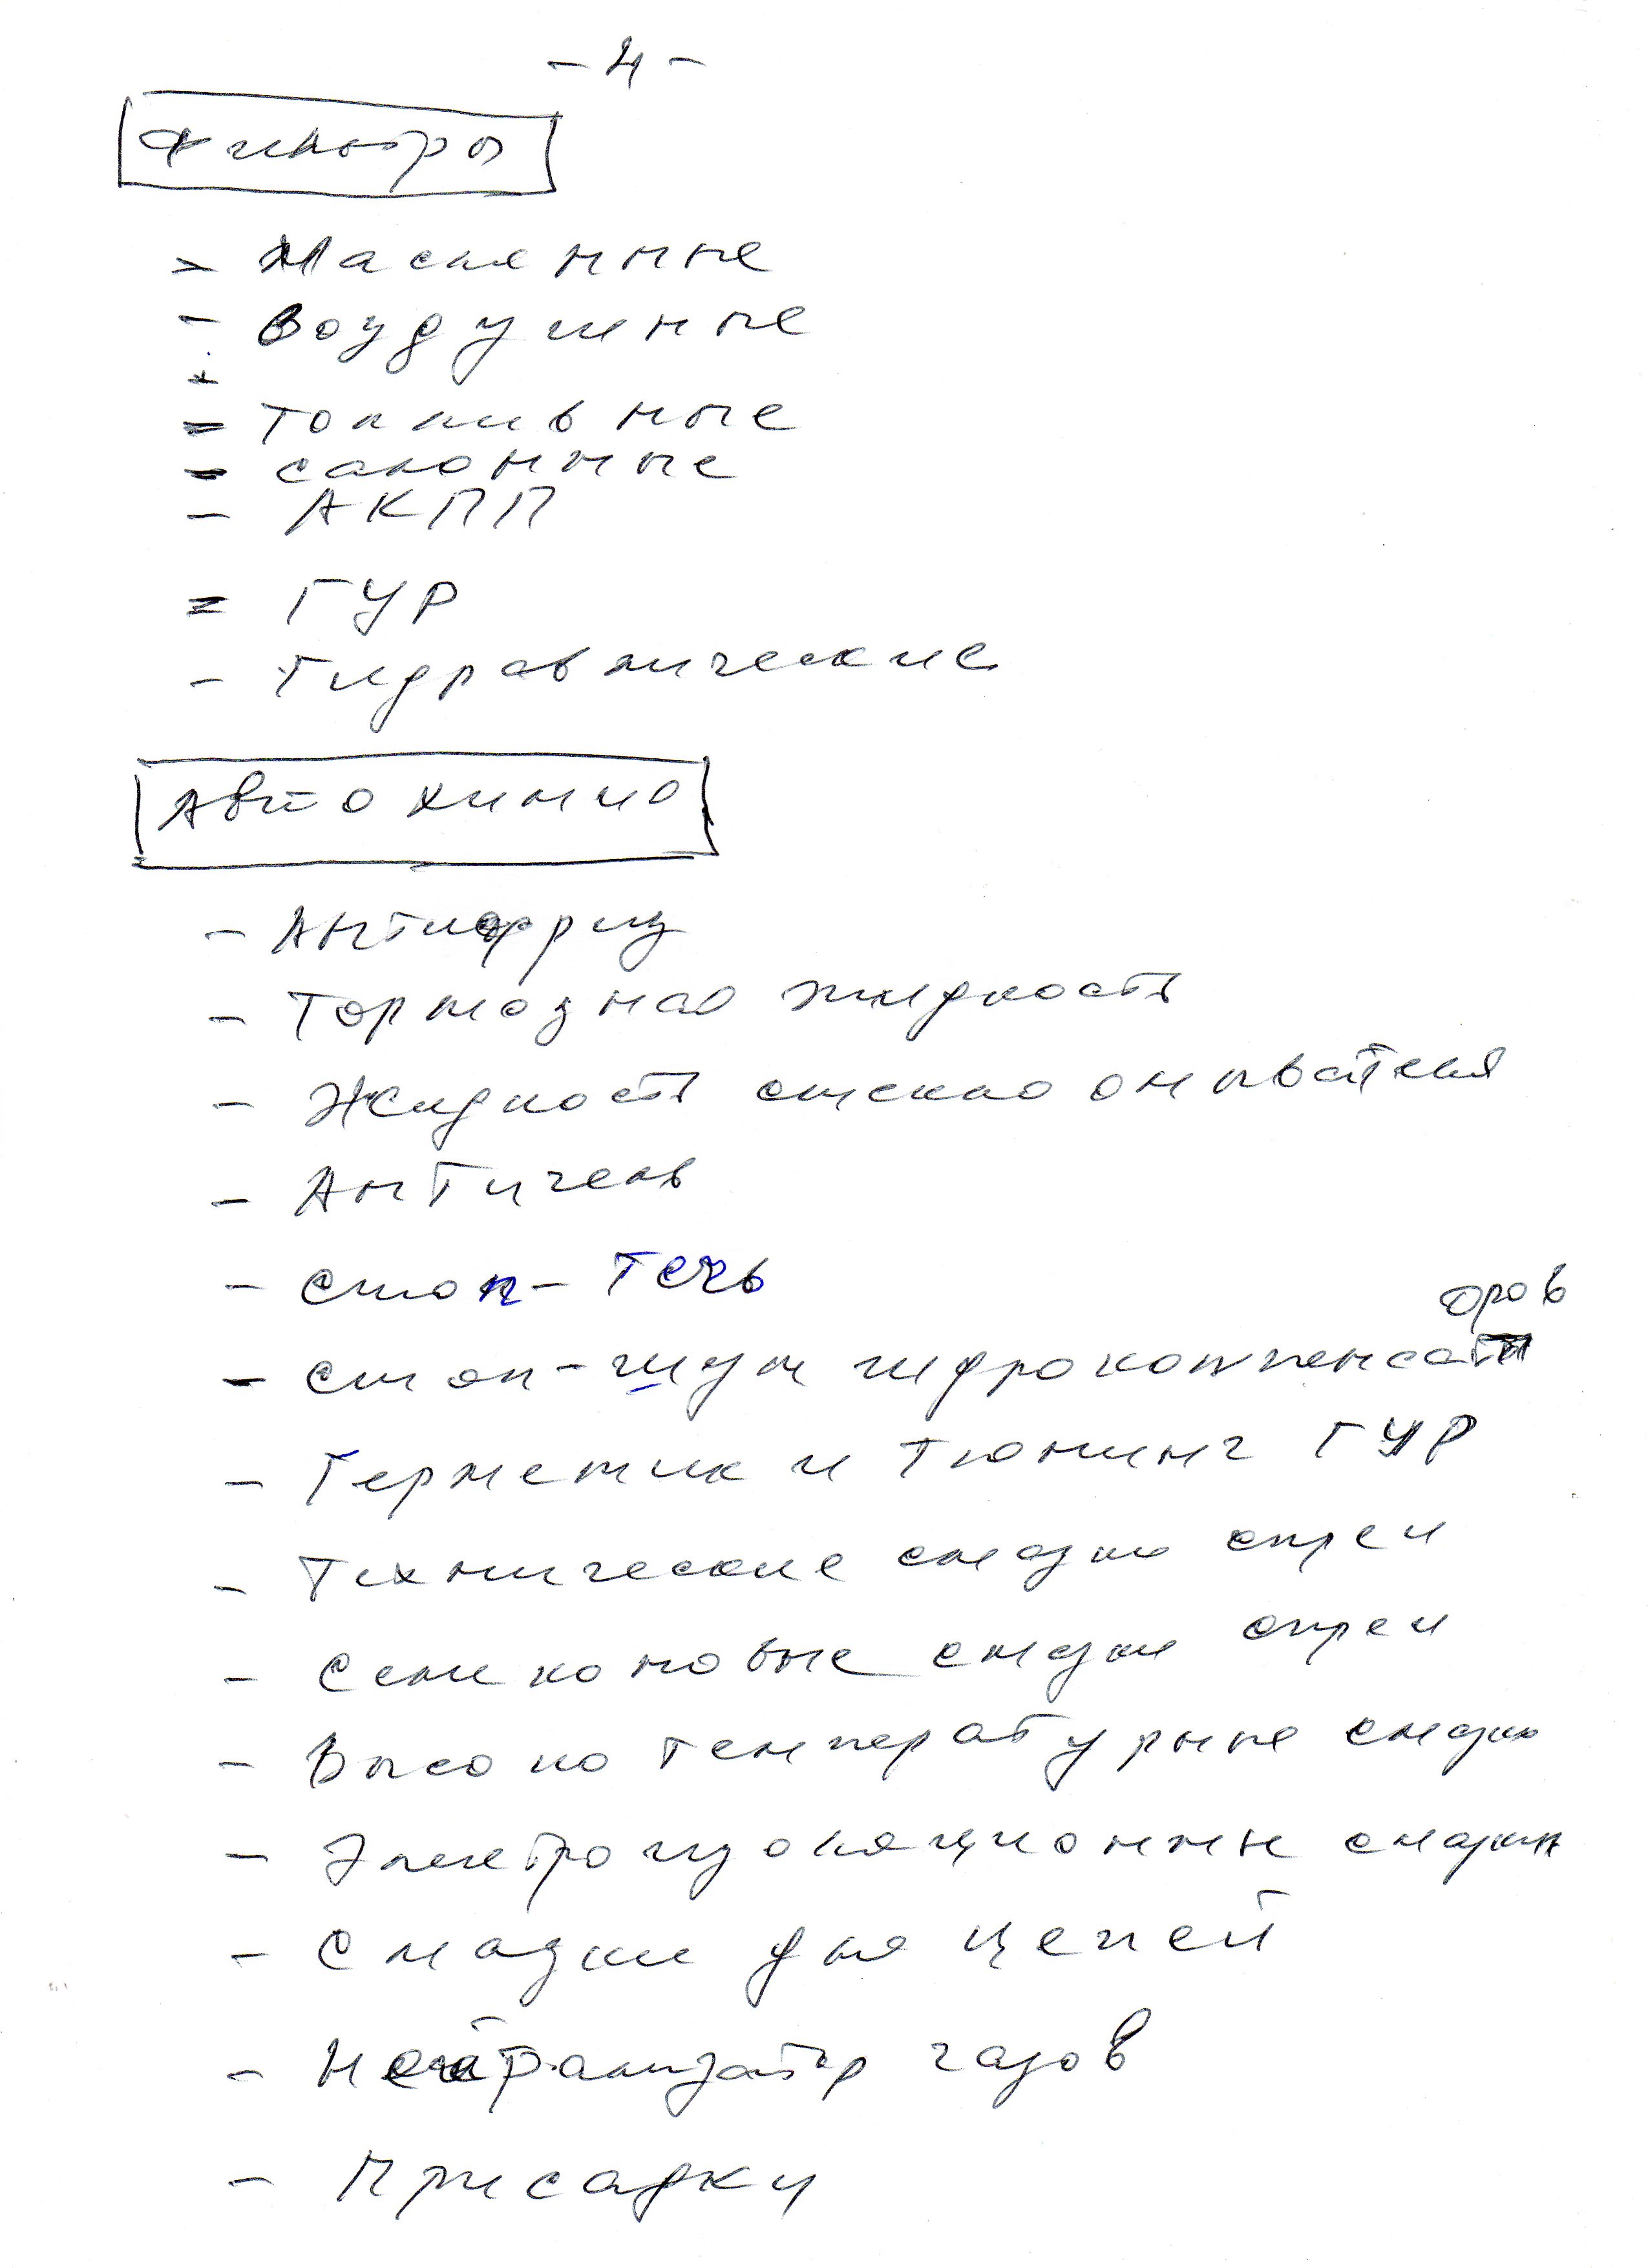 - 4 -
Фильтры
- Масленные
- Воздушные
- Топливные
- салонные
- АКПП
- ГУР
- Гидравлические
Автохимия
- Антифриз
- Тормозная жидкость
- Жидкость стеклоомывателя
- Антигель
- Стоп-Течь
- Стоп-шум гидрокомпенсаторов
- Герметик и Тюнинг ГУР
- Технические смазки спреи
- Силиконовые смазки спреи
- Высокотемпературные смазки
- Электроизоляционные смазки
- Смазки для цепей
- Нейтрализатор газов
- Присадки